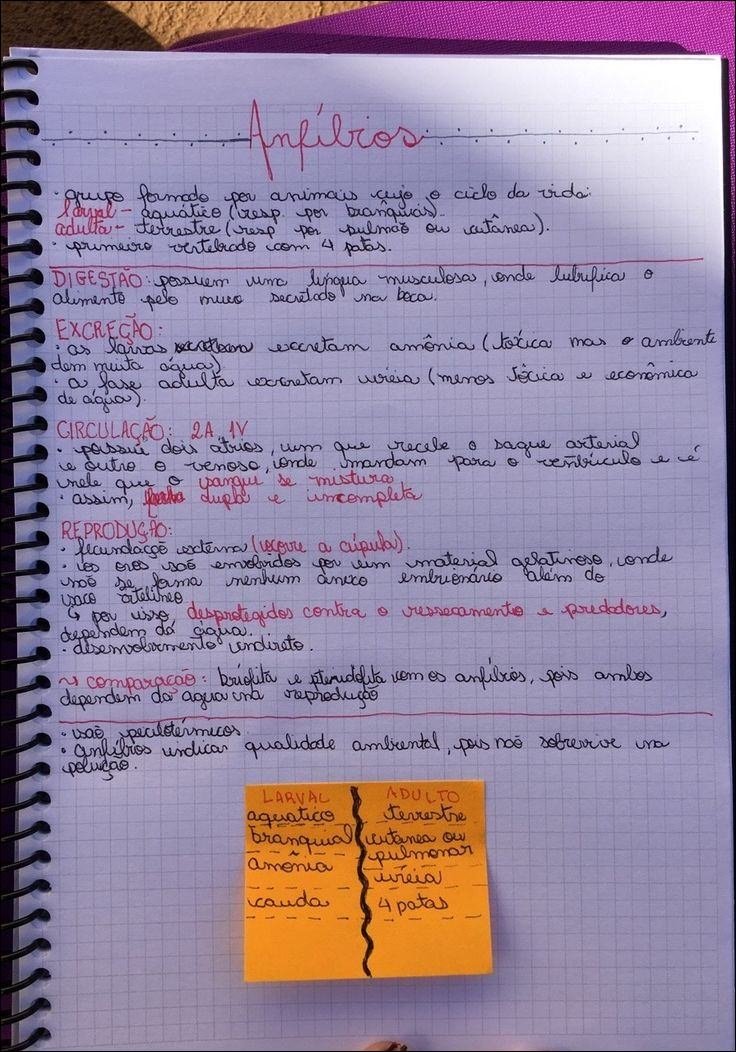 Anfíbios
· grupo formado por animais cujo o ciclo da vida:
larval - aquático (resp. por brânquias).
adulta - terrestre (resp por pulmão ou cutânea).
· primeiro vertebrado com 4 patas.
DIGESTÃO: possuem uma língua musculosa, onde lubrifica o
alimento pelo muco secretado na boca.
EXCREÇÃO:
· as larvas excretam amônia (tóxica mas o ambiente
tem muita água)
· a fase adulta excretam uréia (menos tóxica e econômica
de água).
CIRCULAÇÃO: 2A 1V
· possui dois átrios, um que recebe o sague arterial
e outro o venoso, onde mandam para o ventrículo e é
nele que o sangue se mistura
· assim, dupla e incompleta
REPRODUÇÃO:
· fecundação externa (ocorre a cúpula).
· os ovos são envolvidos por um material gelatinoso, onde
não se forma nenhum anexo embrionário além do
saco vitelíneo
↳ por isso, desprotegidos contra o ressecamento e predadores,
dependem da água...
· desenvolvimento indireto.
~> comparação: briófita e pteridófita com os anfíbios, pois ambos
dependem da agua na reprodução
· são pecilotérmicos.
· Anfíbios indicar qualidade ambiental, pois não sobrevive na
poluição.
LARVAL ADULTO
aquatico terrestre
branquial cutânea ou
pulmonar
amônia uréia
cauda 4 patas